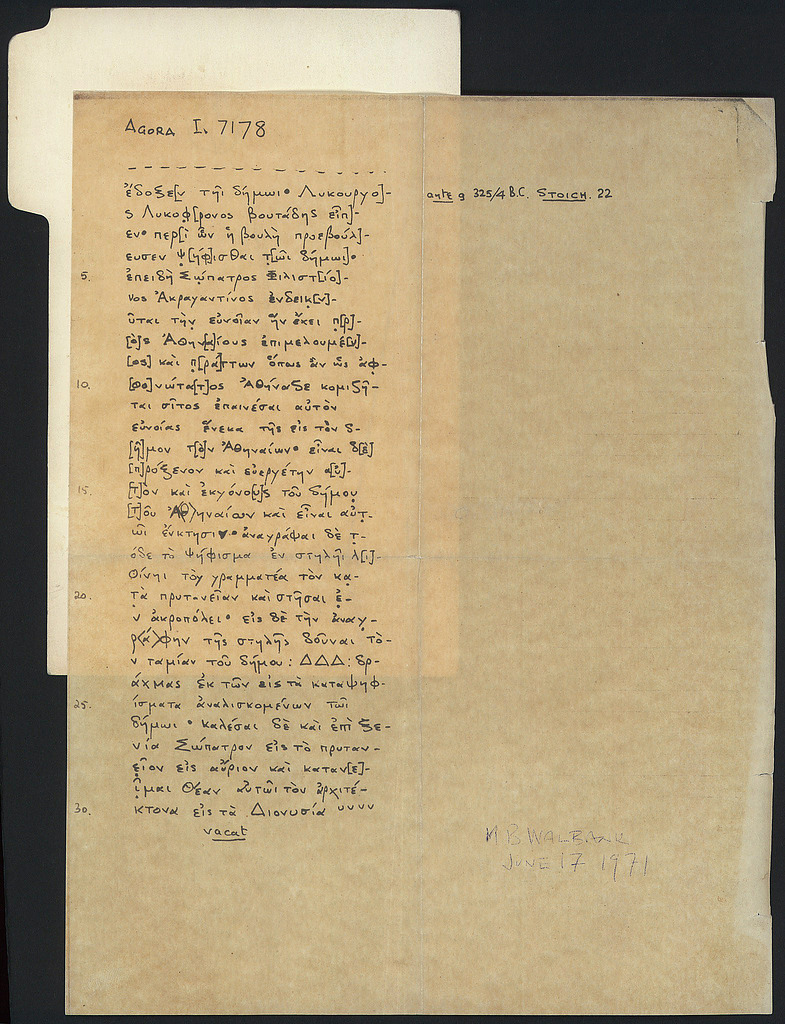 AGORA I. 7178
ἔδοξε[ν τῆι δήμωι· Λυκουργο]-
ς Λυκοφ[ρονος Βουτάδης εἶπ]-
εν· περ[ὶ ὧν ἡ βουλὴ προεβούλ]-
ευσεν ψ[ηφ]ισθαι τ[ῶι δήμωι]·
5. ἐπειδὴ Σώπατρος Φιλιστ[ίο]-
νος Ἀκραγαντίνος ἐνδεικ[ν]-
ῦται τὴν εὔνοιαν ἣν ἔχει π[ρ]-
[ὸ]ς Ἀθην[α]ίους ἐπιμελουμέ[ν]-
[ος] καὶ π[ρά]ττων ὅπως ἂν ὡς ἀφ-
10. [θο]νώτα[τ]ος Ἀθήναζε κομιζῆ-
ται σῖτος ἐπαινέσαι αὐτὸν
εὐνοίας ἕνεκα τῆς εἰς τὸν δ-
[ῆ]μον τ[ὸ]ν Ἀθηναίων· εἶναι δ[ὲ]
[π]ρόξενον καὶ εὐεργέτην α[ὐ]-
15. [τ]ὸν καὶ ἐκγόνο[υ]ς τοῦ δήμου
[τ]οῦ Ἀ⟨θ⟩ηναίων καὶ εἶναι αὐτ-
ῶι ἔνκτησιν· ἀναγράψαι δὲ τ-
όδε τὸ ψήφισμα ἐν στηλῆι λ[ι]-
θίνηι τὸγ γραμματέα τὸν κα-
20. τὰ πρυτανεῖαν καὶ στῆσαι ἐ-
ν ἀκροπόλει· εἰς δὲ τὴν ἀναγ-
ρ⟨ά⟩φὴν τῆς στηλῆς δοῦναι τὸ-
ν ταμίαν τοῦ δήμου : ΔΔΔ: δρ-
άχμας ἐκ τῶν εἰς τὰ καταψηφ-
25. ίσματα ἀναλισκομένων τῶι
δήμωι· καλέσαι δὲ καὶ ἐπὶ ξε-
νία Σώπατρον εἰς τὸ πρυταν-
εῖον εἰς αὔριον καὶ καταν[ε]-
ῖμαι θέαν αὐτῶι τὸν ἀρχιτέ-
30. κτονα εἰς τὰ Διονυσία υυυυ
vacat
ante a 325/4 B.C. STOICH. 22
M B WALBANK
JUNE 17 1971